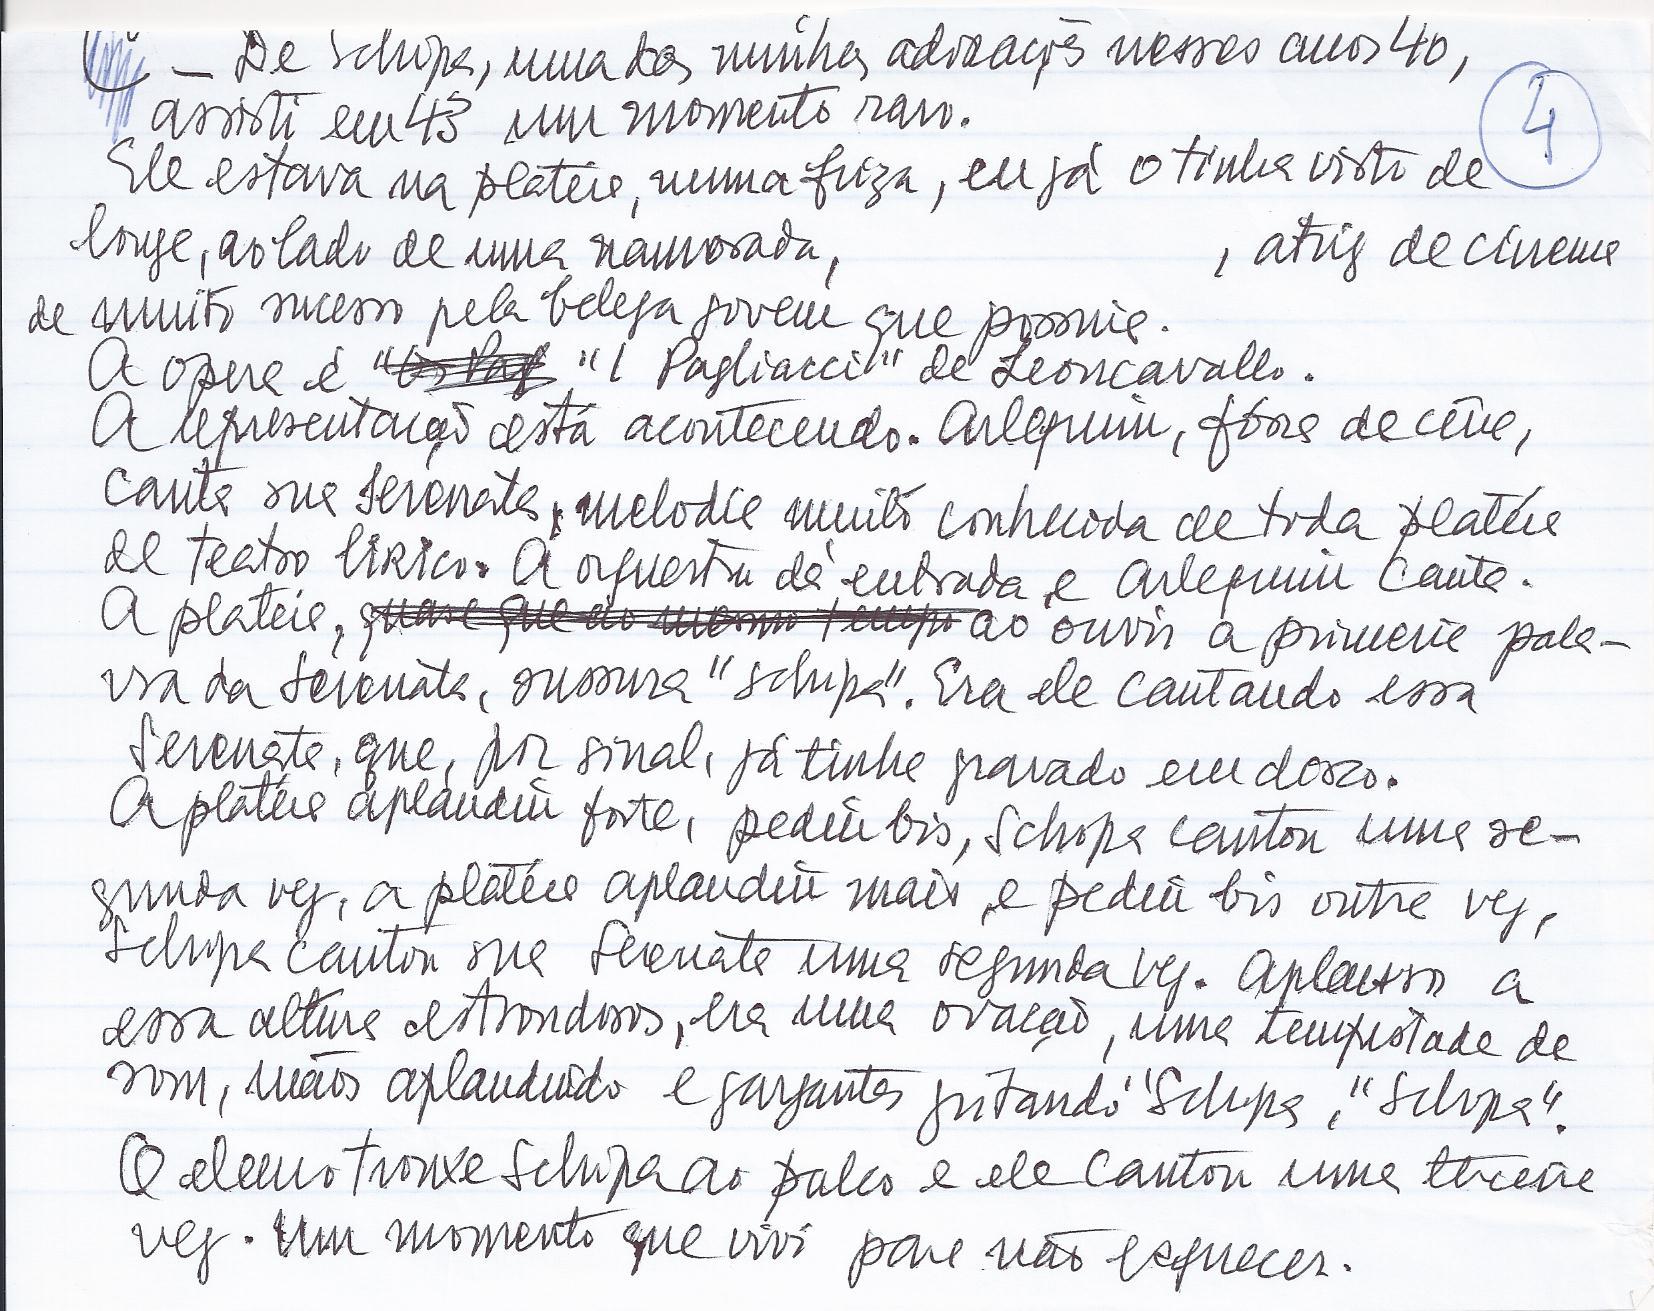 — De Schipa, uma das minhas adorações nesses anos 40,
assisti em 43 um momento raro.
4
Ele estava na platéia, numa friza, eu já o tinha visto de
longe, ao lado de uma namorada, , atriz de cinema
de muito sucesso pela beleza jovem que possuia.
A opera é "I Pagliacci" de Leoncavallo.
A representação está acontecendo. Arlequim, fóra de cêna,
canta sua serenata, melodia muito conhecida de toda platéia
de teatro lírico. A orquestra dá entrada e Arlequim canta.
A platéia, quase que ao mesmo tempo ao ouvir a primeira pala-
vra da serenata, sussura "Schipa". Era ele cantando essa
Serenata, que, por sinal, já tinha gravado em disco.
A platéia aplaudiu forte, pediu bis, Schipa cantou uma se-
gunda vez, a platéia aplaudiu mais e pediu bis outra vez,
Schipa cantou sua Serenata uma segunda vez. Aplausos a
essa altura estrondosos, era uma ovação, uma tempestade de
som, mãos aplaudindo e gargantas gritando "Schipa", "Schipa".
O elenco trouxe Schipa ao palco e ele cantou uma terceira
vez. Um momento que vivi para não esquecer.